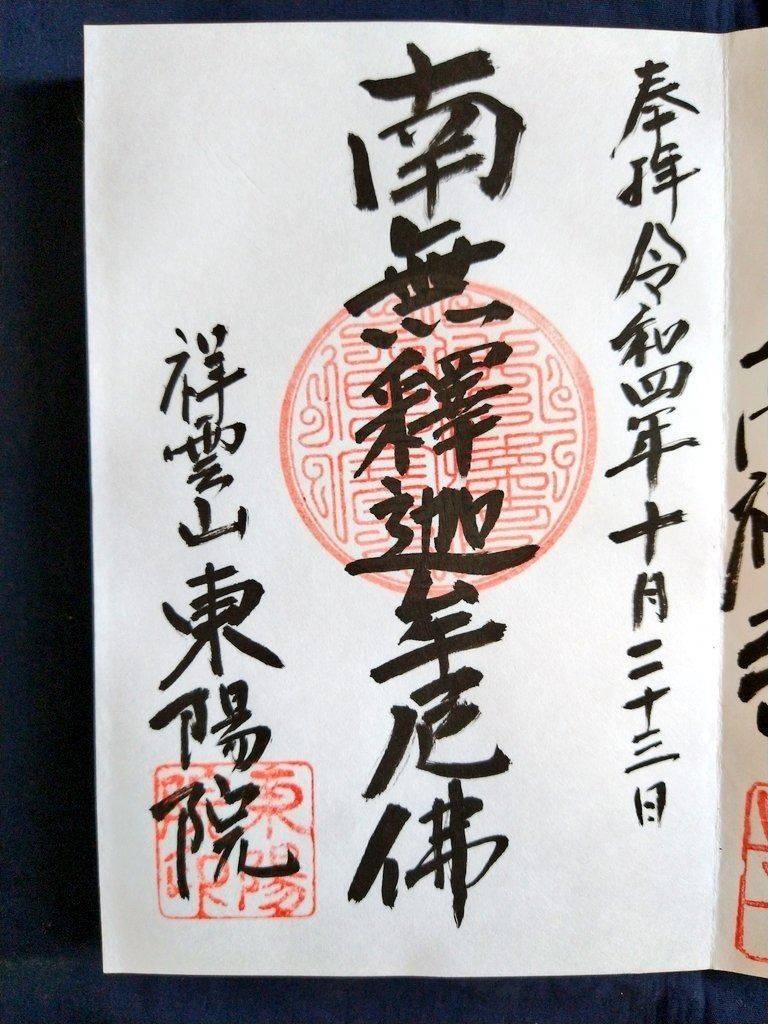 奉拝 令和四年十月二十三日
南無釋迦牟尼佛
祥雲山 東陽院